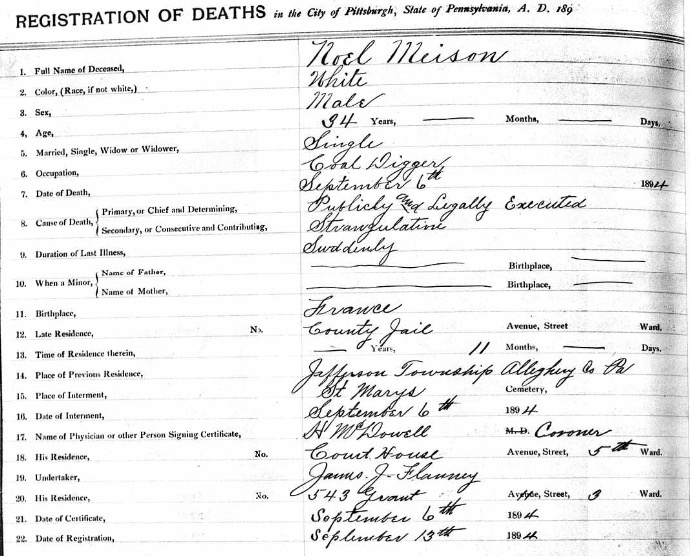 REGISTRATION OF DEATHS in the City of Pittsburgh, State of Pennsylvania, A. D. 189
1. Full Name of Deceased, Noel Meison
2. Color, (Race, if not white,) White
3. Sex, Male
4. Age, 34 Years, Months, Days,
5. Married, Single, Widow or Widower, Single
6. Occupation, Coal Digger
7. Date of Death, September 6th 1894
8. Cause of Death, { Primary, or Chief and Determining, Publicly and Legally Executed
Secondary, or Consecutive and Contributing, Strangulatine
9. Duration of Last Illness, Suddenly
10. When a Minor, { Name of Father, Birthplace,
Name of Mother, Birthplace,
11. Birthplace, France
12. Late Residence, No. County Jail Avenue, Street Ward.
13. Time of Residence therein, Years, 11 Months, Days.
14. Place of Previous Residence, Jefferson Township Allegheny Co Pa
15. Place of Interment, St Marys Cemetery,
16. Date of Interment, September 6th 1894
17. Name of Physician or other Person Signing Certificate, H McDowell M. D. Coroner
18. His Residence, No. Court House Avenue, Street, 5th Ward.
19. Undertaker, James J Flanney
20. His Residence, No. 543 Grant Avenue, Street, 3 Ward.
21. Date of Certificate, September 6th 1894
22. Date of Registration, September 13th 1894